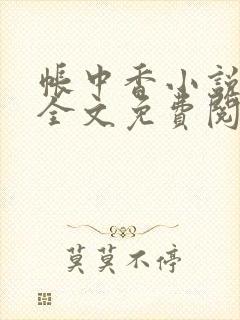 帳中香小說
全文免費閱
莫莫不停